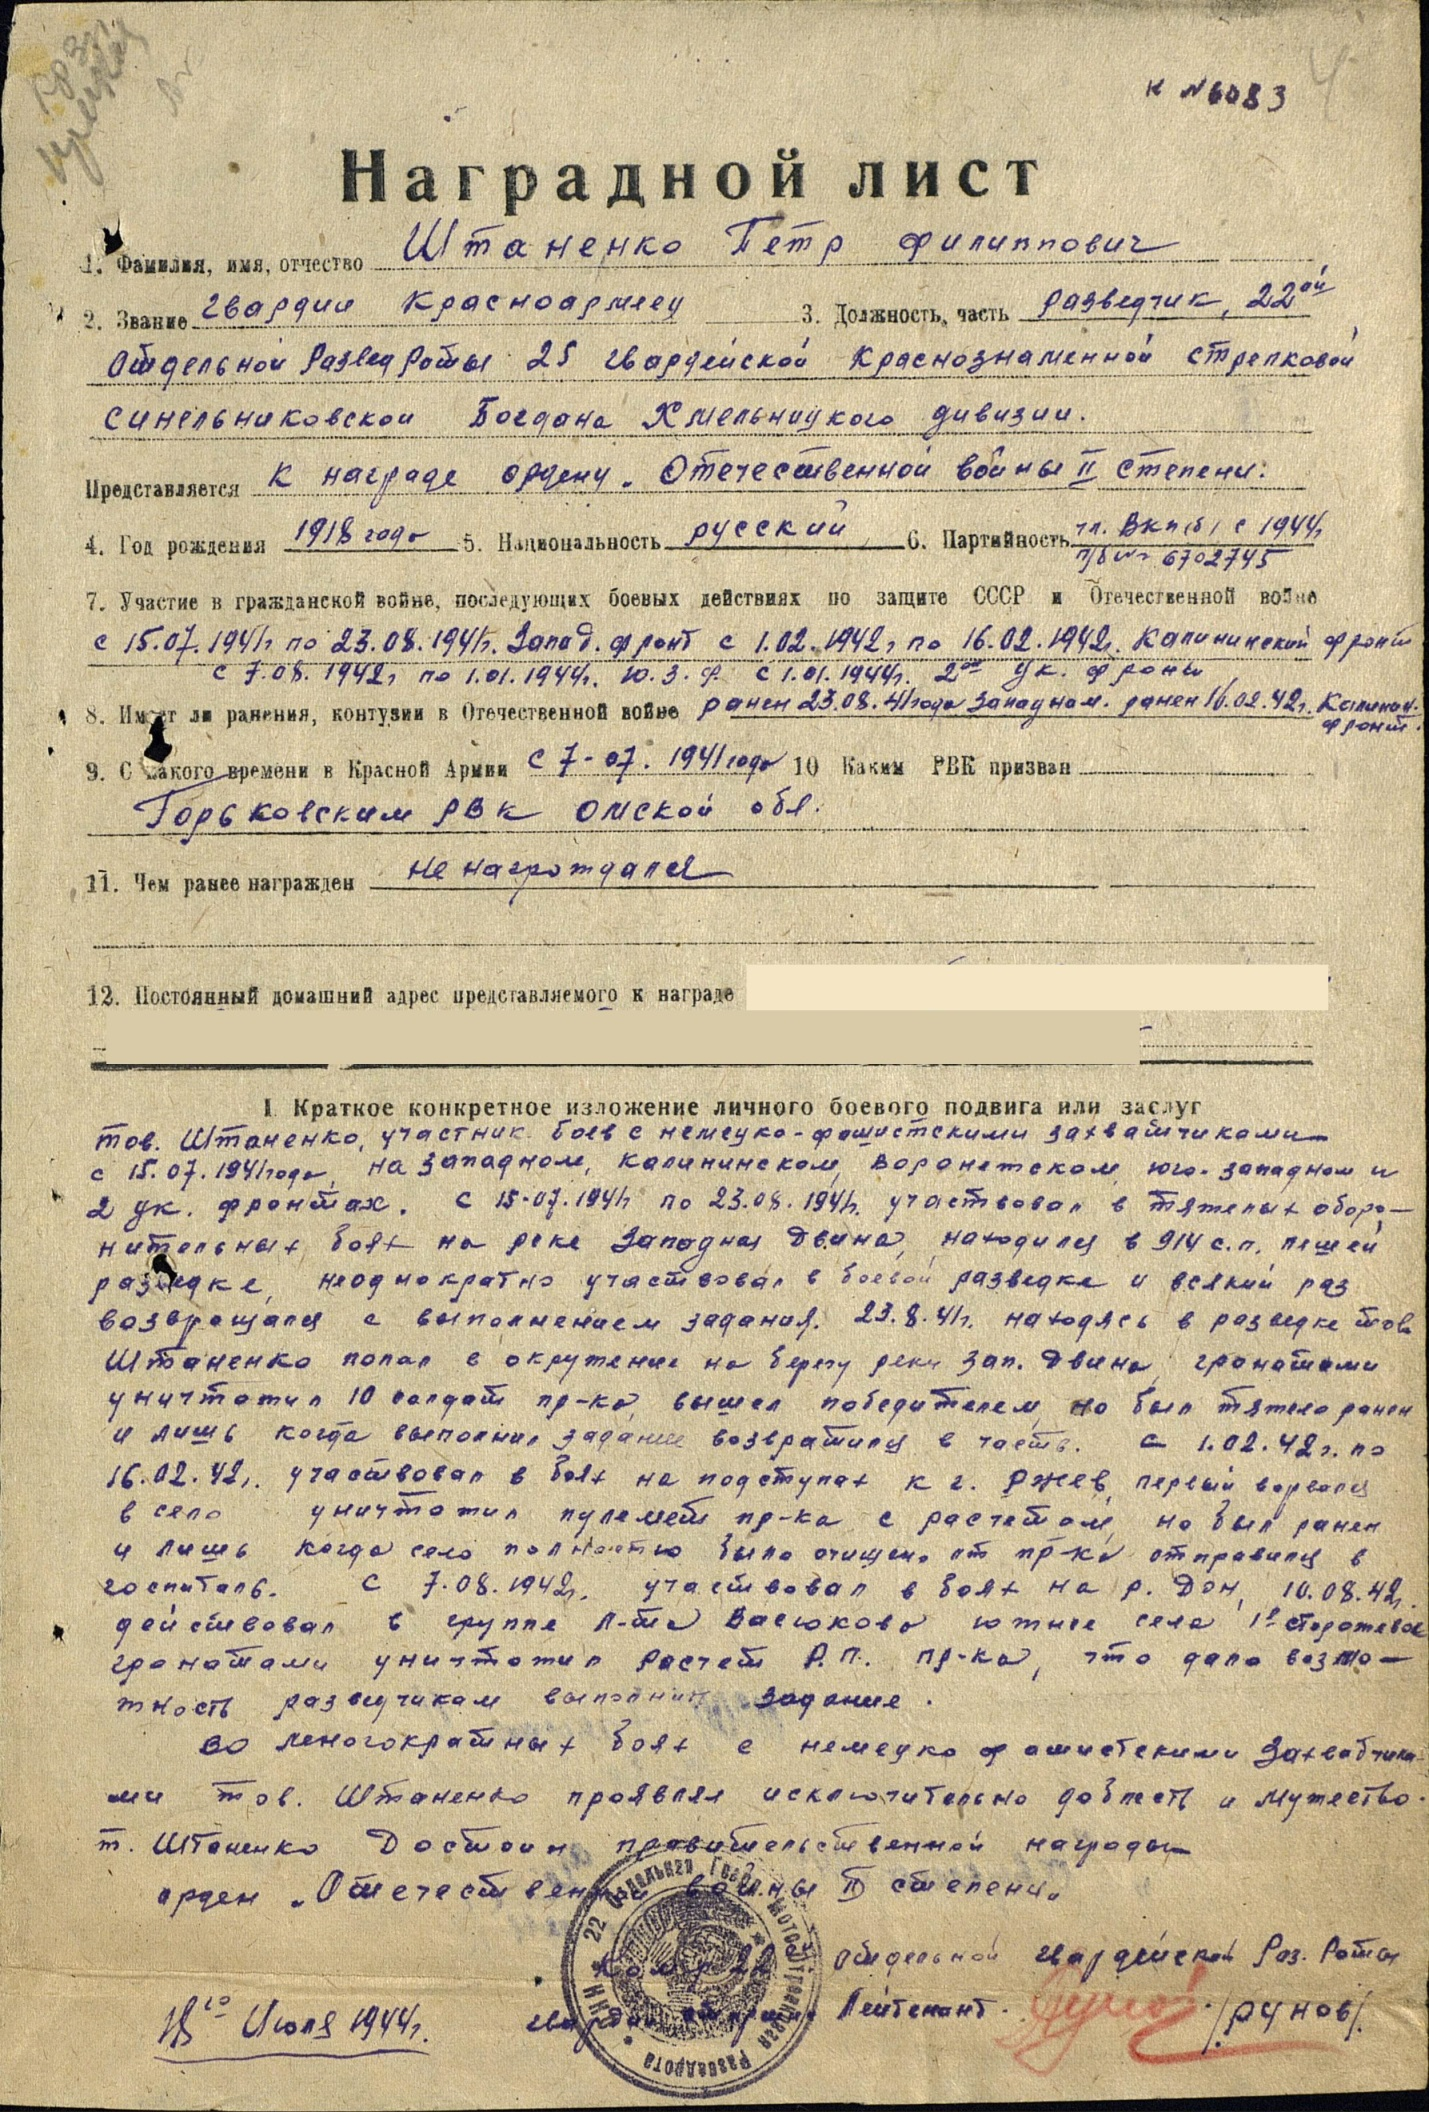 к №6083
4
Наградной лист
1. Фамилия, имя, отчество Штаненко Петр Филиппович
2. Звание гвардии Красноармеец 3. Должность, часть разведчик, 22ой
отдельной Развед Роты 25 гвардейской Краснознаменной стрелковой
Синельниковской Богдана Хмельницкого дивизии.
Представляется к награде ордену „Отечественной войны II степени.
4. Год рождения 1918 года 5. Национальность русский 6. Партийность чл. ВКП(б) с 1944г
п/б № 6702745
7. Участие в гражданской войне, последующих боевых действиях по защите СССР и Отечественной войне
с 15.07.1941г по 23.08.1941г. Запад. фронт с 1.02.1942г по 16.02.1942г. Калининский фронт
с 7.08.1942г по 1.01.1944г. Ю.З.Ф. с 1.01.1944г. 2ой Ук. фронт
8. Имеет ли ранения, контузии в Отечественной войне ранен 23.08.41года Западном. ранен 16.02.42г. Калинин.
фронт.
9. С какого времени в Красной Армии с 7-07.1941года 10 Каким РВК призван
Горьковским РВК Омской обл.
11. Чем ранее награжден не нагрождался
12. Постоянный домашний адрес представляемого к награде
I Краткое конкретное изложение личного боевого подвига или заслуг
тов. Штаненко, участник боев с немецко-фашистскими захватчиками
с 15.07.1941года, на западном, калининском, воронежском, юго-западном и
2 ук. фронтах. С 15-07.1941г по 23.08.1941г. участвовал в тяжелых оборо-
нительных боях на реке Западная Двина, находился в 914 с.п. пешей
разведке, неоднократно участвовал в боевой разведке и всякий раз
возвращался с выполнением задания. 23.8.41г. находясь в разведке тов.
Штаненко попал в окружение на берегу реки Зап. Двина, гранатами
уничтожил 10 солдат пр-ка, вышел победителем, но был тяжело ранен
и лишь когда выполнил задание возвратился в часть. С 1.02.42г. по
16.02.42г. участвовал в боях на подступах к г. Ржев, первый ворвался
в село уничтожил пулемет пр-ка с расчетом, но был ранен
и лишь когда село полностью было очищено от пр-ка отправился в
госпиталь. С 7.08.1942г. участвовал в боях на р. Дон, 10.08.42г.
действовал в группе л-та Васюкова южнее села 1е Сторожевое
гранатами уничтожил расчет Р.П. пр-ка, что дало возмо-
жность разведчикам выполнить задание.
Во многократных боях с немецко фашистскими захватчика-
ми тов. Штаненко проявлял исключительно доблесть и мужество.
т. Штаненко Достоин правительственной награды
орден „Отечественной войны II степени"
Ком-р 22 отдельной гвардейской Раз. Роты
гвардии старший Лейтенант. /Рунов/.
18го Июля 1944г.
22 Отдельная Гвард. Мотострелковая Разведрота * НКО *